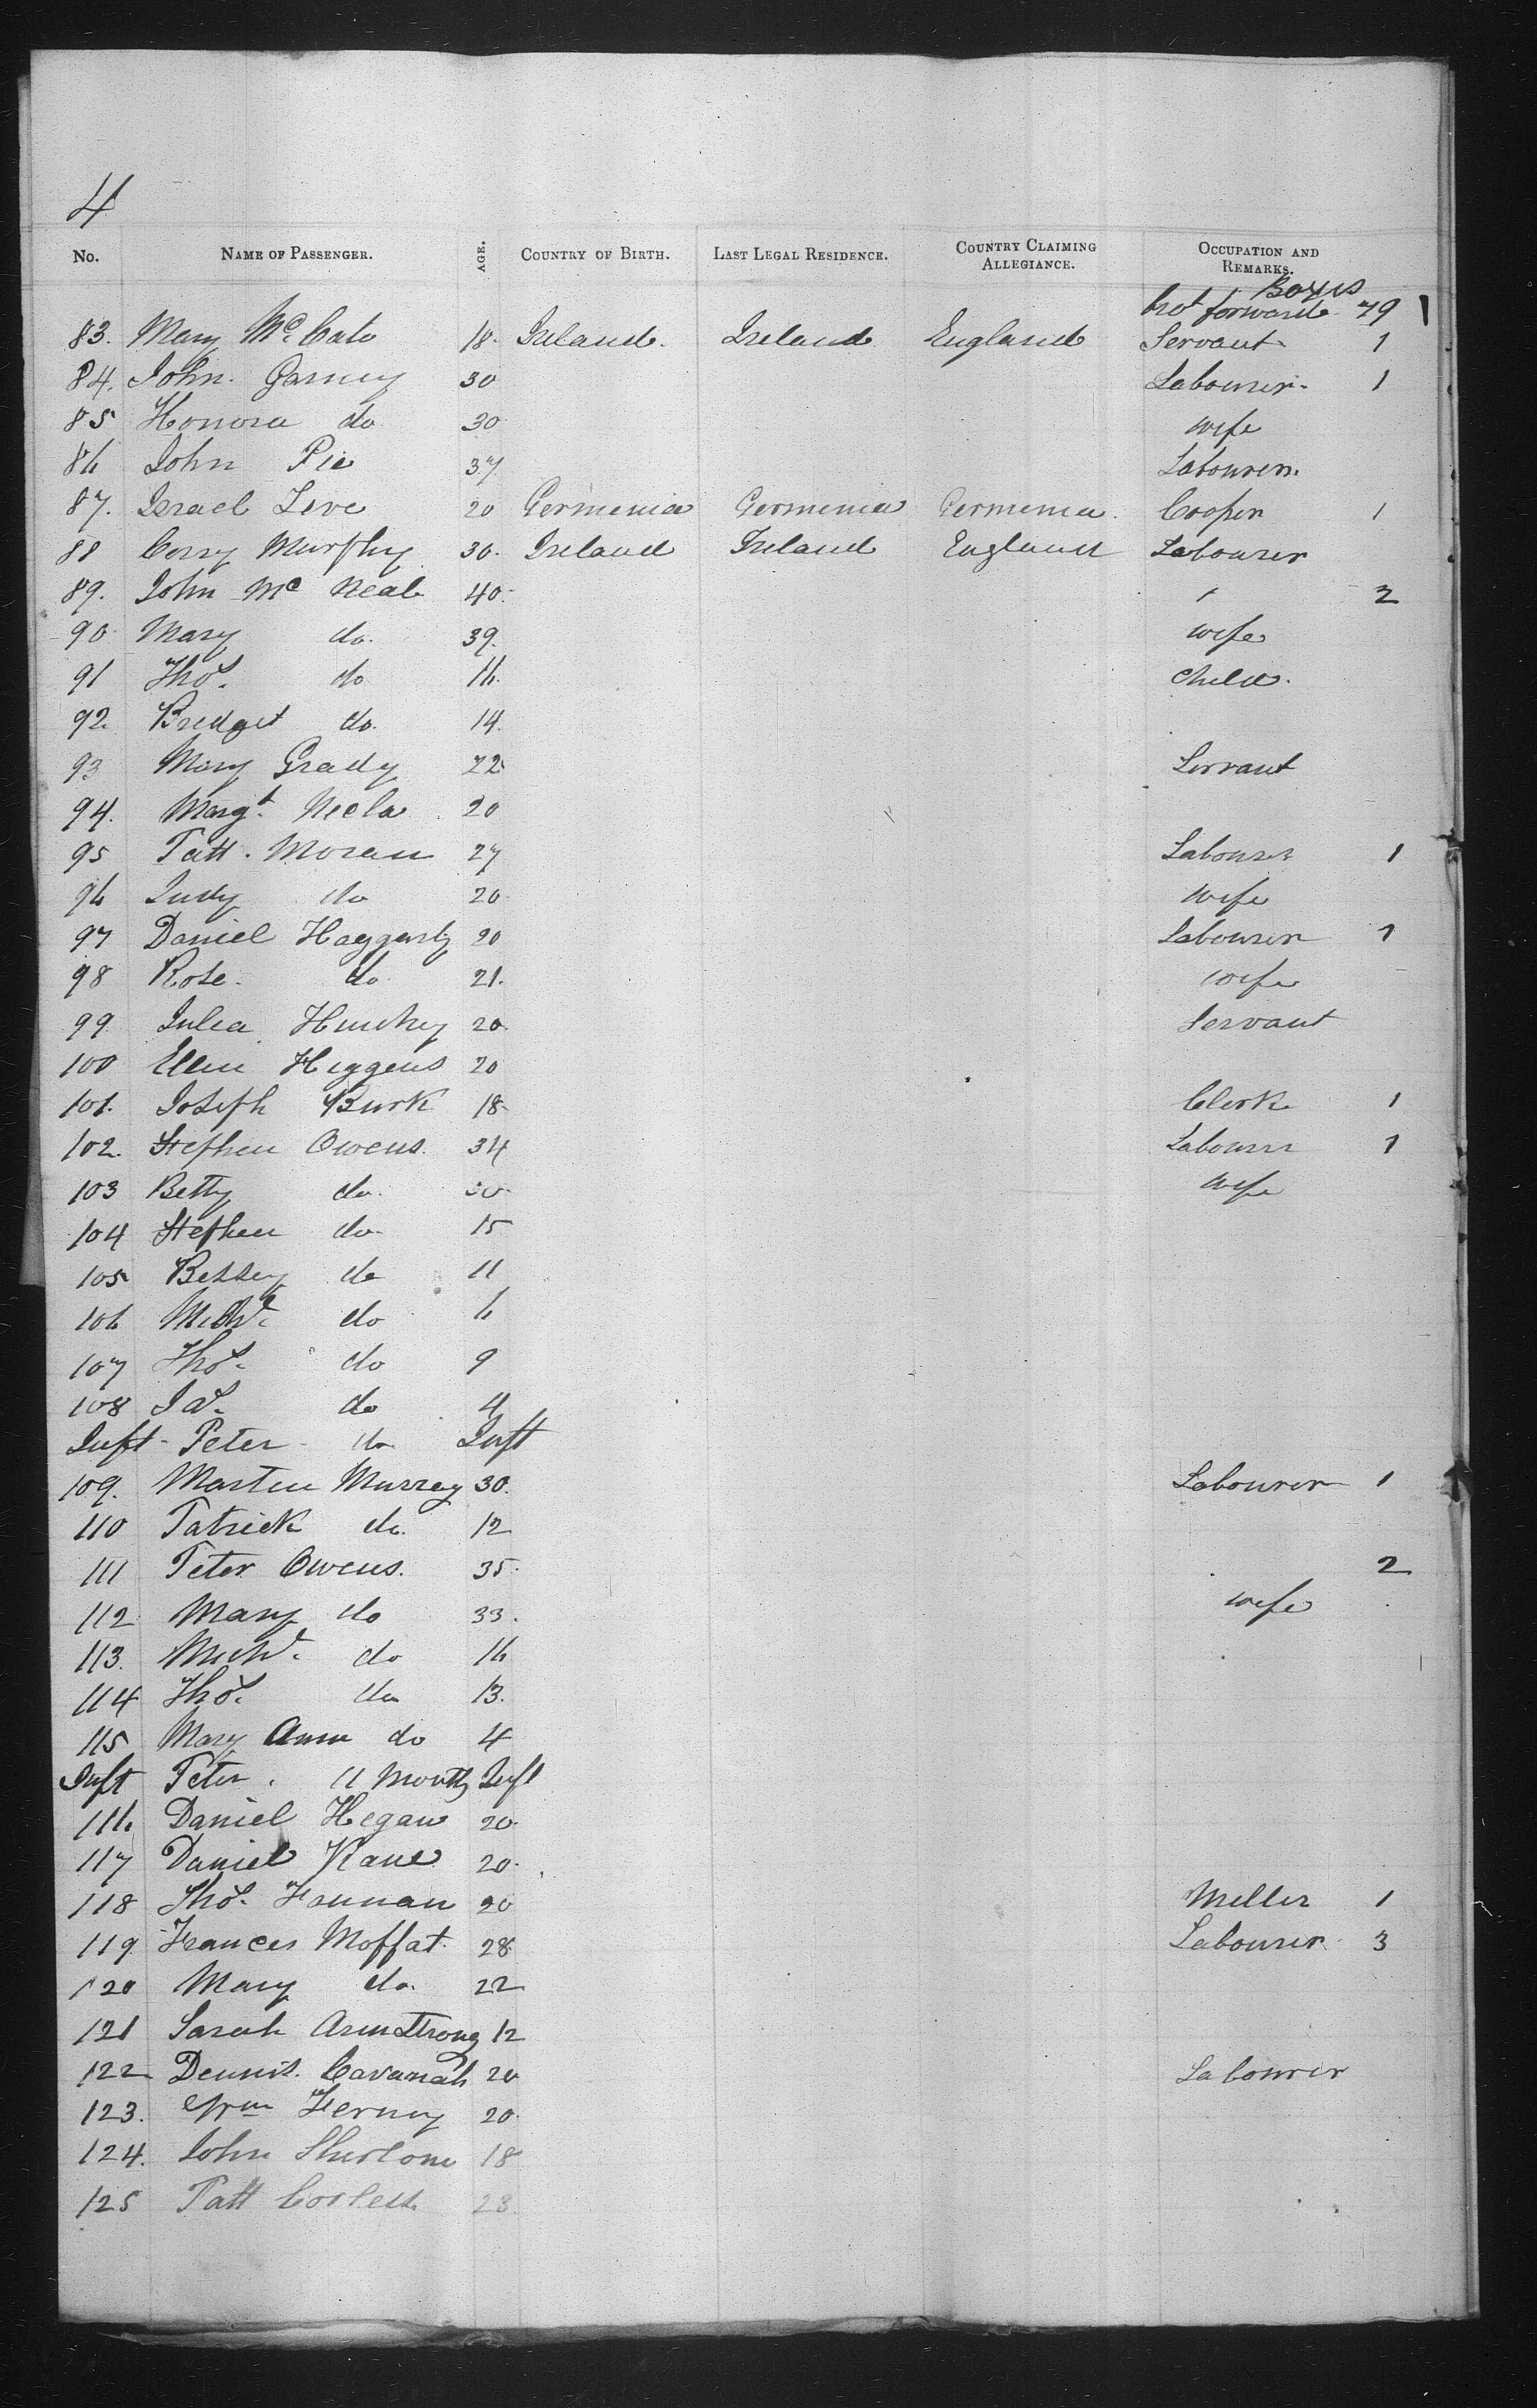 4
No. NAME OF PASSENGER. AGE. COUNTRY OF BIRTH. LAST LEGAL RESIDENCE. COUNTRY CLAIMING ALLEGIANCE. OCCUPATION AND REMARKS.
Boxes
brot forward 79
83. Mary Mc Cale 18. Ireland. Ireland England Servant 1
84. John Garney 30 Labourer 1
85 Honora do 30 wife
86 John Pie 37 Labourer
87. Israel Leve 20 Germenia Germenia Germenia Cooper 1
88 Corry Murphy 30. Ireland Ireland England Labourer
89. John Mc Neal 40. 2
90 Mary do. 39. wife
91 Thos. do 16. Child.
92. Bredget do. 14.
93 Mary Grady 22 Servant
94. Margt. Neela 20
95 Patt. Moran 27 Labourer 1
96 Judy do 20 wife
97 Daniel Haggerty 20 Labourer 1
98 Rose do 21. wife
99 Julea 20. Servant
100 Ellen Heggens 20
101. Joseph Burk 18 Clerk 1
102. Stephen Owens. 34 Labourer 1
103 Betty do. 30 wife
104 Stephen do. 15
105 Bessey do 11
106 Michl. do 6
107 Thos. do 9
108 Jas. do 4
Inft Peter do Inft
109. Marten Murray 30. Labourer 1
110 Patrick do. 12
111 Peter Owens. 35. 2
112 Mary do 33. wife
113. Michl. do 16
114 Thos. do 13.
115 Mary Ann do 4
Inft Peter. 11 Months Inft
116. Daniel Hegan 20.
117 Daniel Kane 20.
118 Thos. Hannan 20 Meller 1
119 Frances Moffat. 28. Labourer 3
120 Mary do. 22
121 Sarah Armstrong 12
122 Dennis. Cavanah 20 Labourer
123. Wm 20.
124. John 18
125 Patt 23